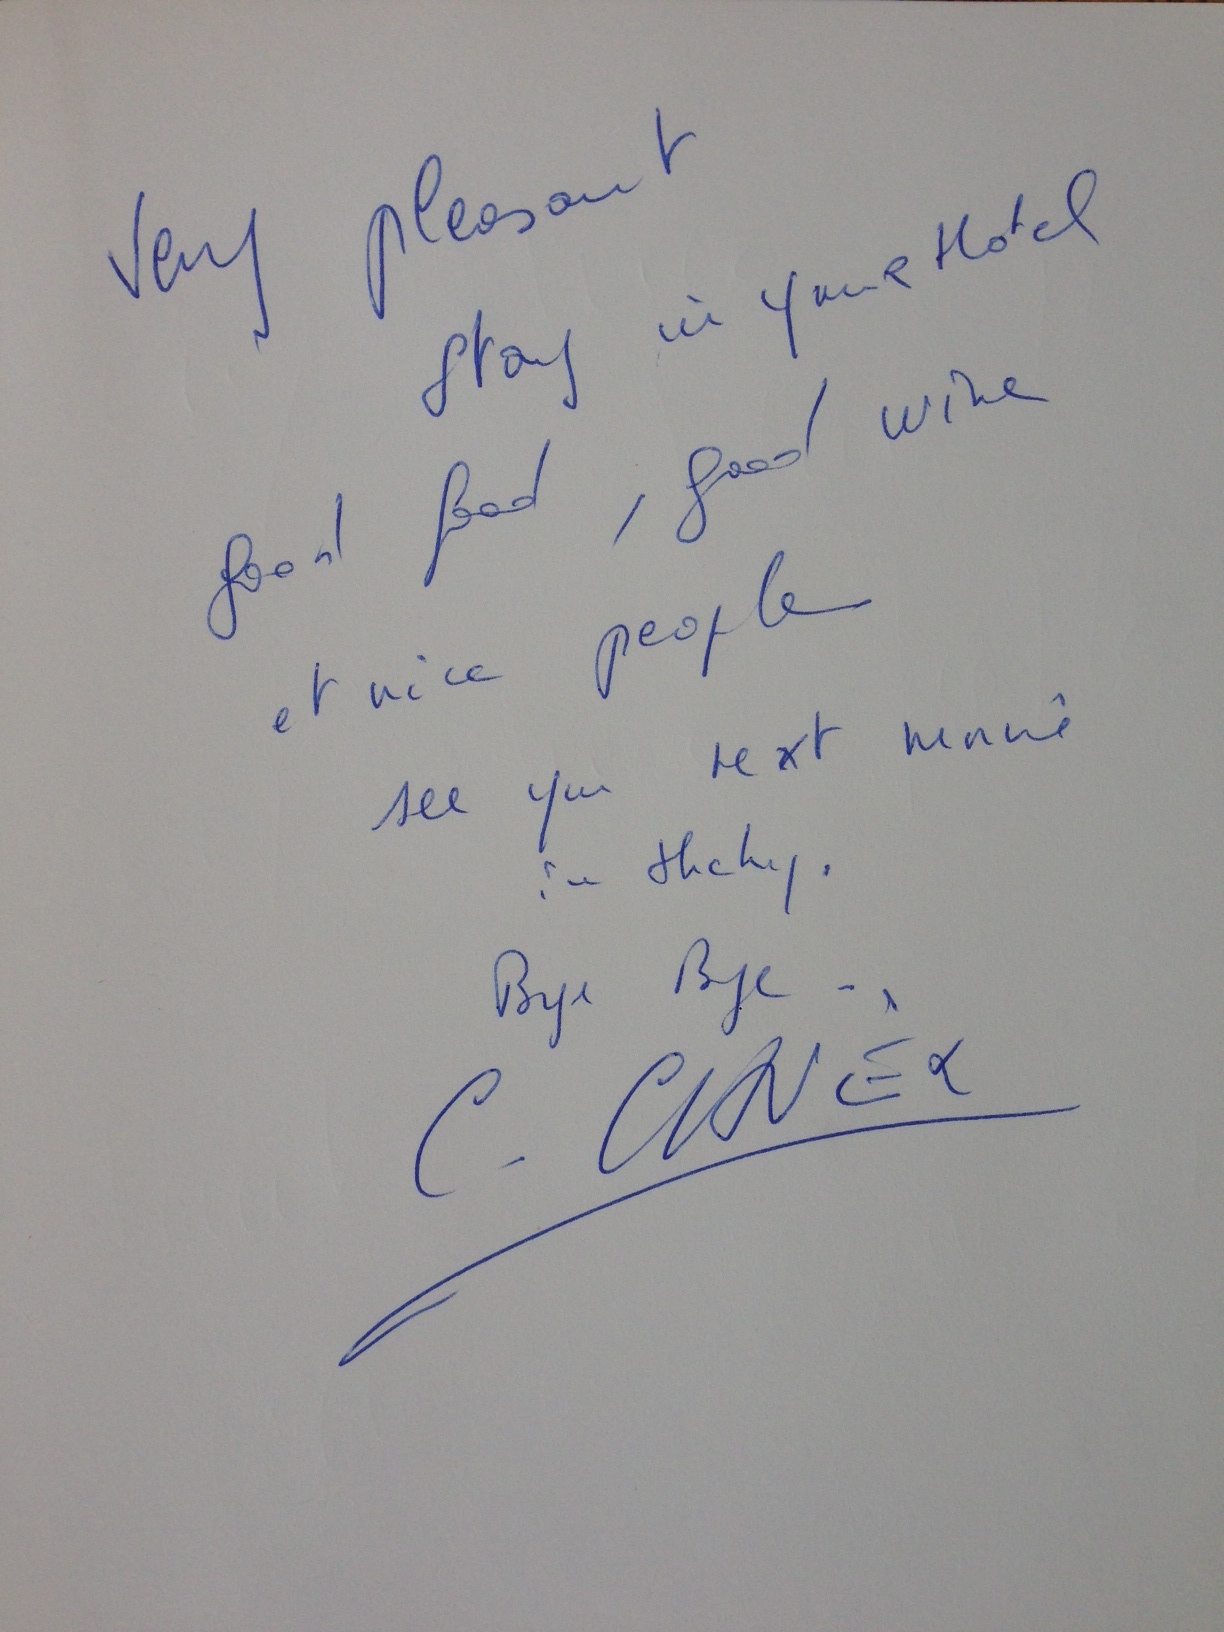 Very pleasant
stay in your Hotel
good food, good wine
et nice people
see you next
in
Bye Bye
C.